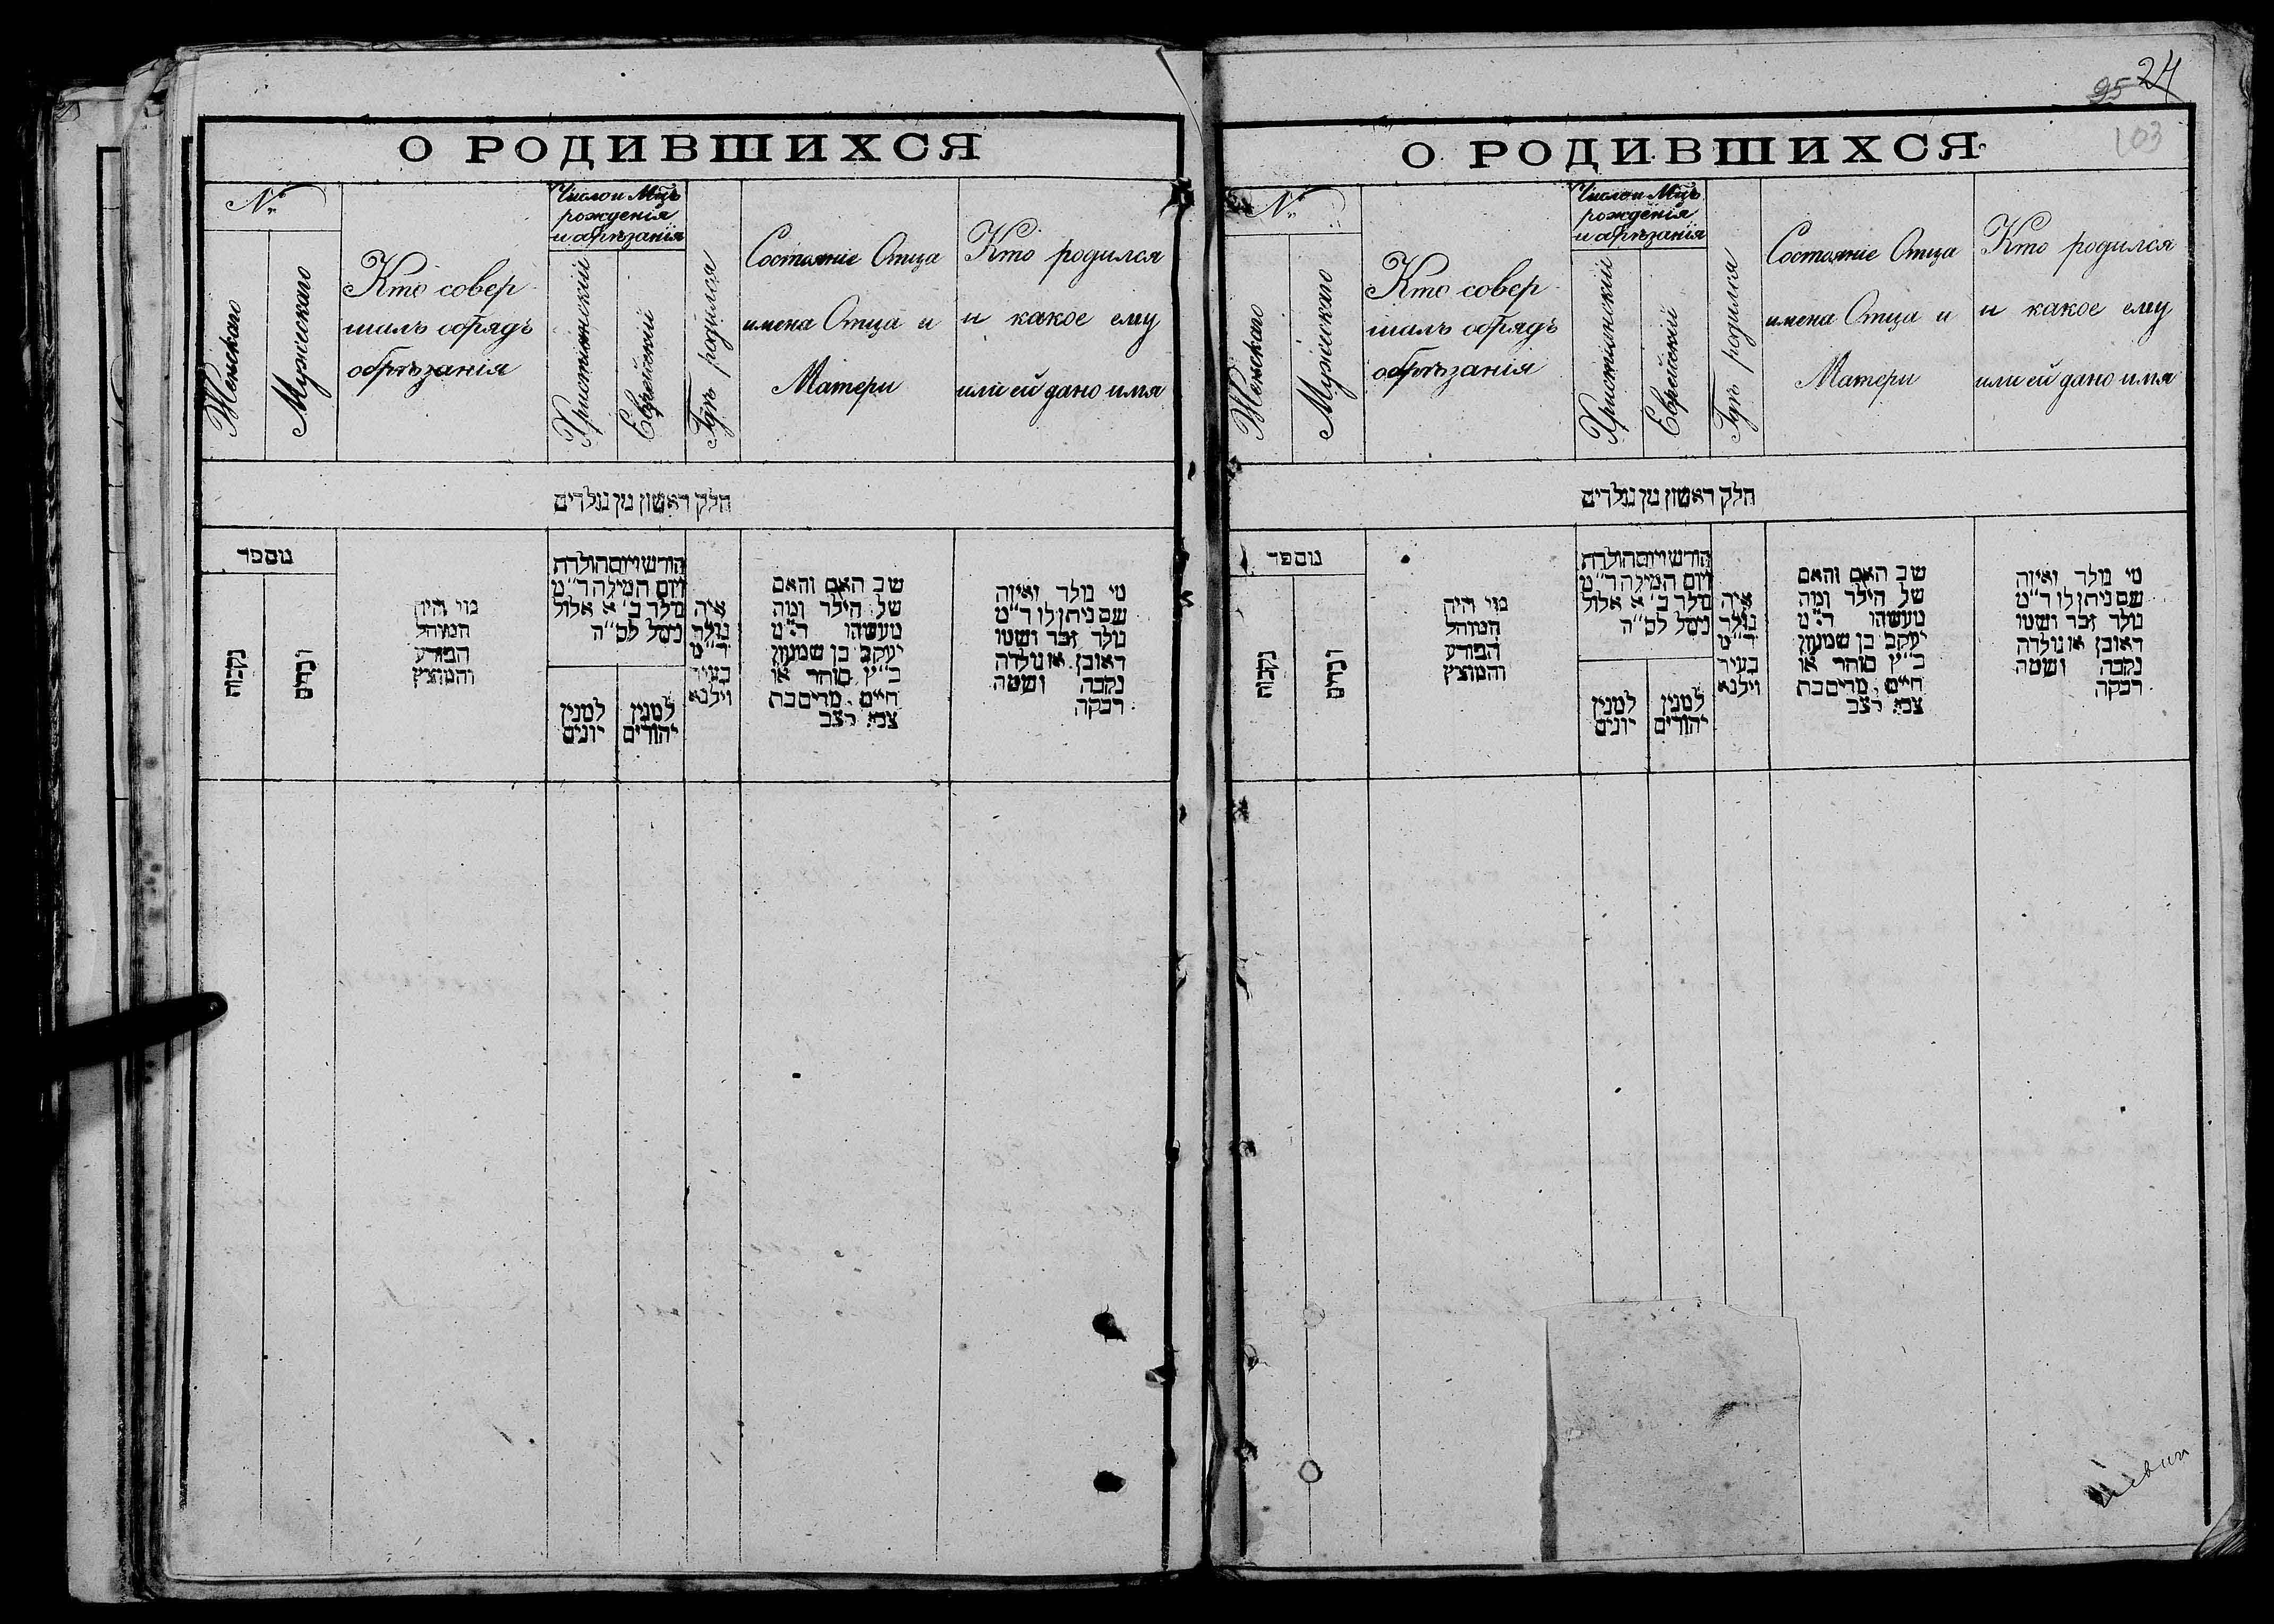 О РОДИВШИХСЯ
№
Женскаго
Мужескаго
Кто совер
шалъ обрядъ
обрѣзанія
Число и Мцъ
рожденія
и обрѣзанія
Христіянскій
Еврейскій
Гдѣ родился
Состояніе Отца
имена Отца и
Матери
Кто родился
и какое ему
или ей дано имя
חלק ראשון מן נולדים
מספר
נקבות
זכרים
מי היה
המוהל
הפורע
והמוצץ
חודש ויום הולדת
ויום המילה ד"מ
נולד ב' א אלול
נימל לס"ה
למנין
יונים
למנין
יהודים
איה
נולד
ד"מ
בעיר
וילנא
שב האם והאם
של הילד ומה
מעשהו ד"מ
יעקב בן שמעון
כ"ץ סוחר או
חייט מרים בת
צבי רצב
מי נולד ואיזה
שם ניתן לו ד"מ
נולד זכר ושמו
ראובן או נולדה
נקבה ושמה
רבקה
95 24
103
О РОДИВШИХСЯ
№
Женскаго
Мужескаго
Кто совер
шалъ обрядъ
обрѣзанія
Число и Мцъ
рожденія
и обрѣзанія
Христіянскій
Еврейскій
Гдѣ родился
Состояніе Отца
имена Отца и
Матери
Кто родился
и какое ему
или ей дано имя
חלק ראשון מן נולדים
מספר
נקבות
זכרים
מי היה
המוהל
הפורע
והמוצץ
חודש ויום הולדת
ויום המילה ד"מ
נולד ב' א אלול
נימל לס"ה
למנין
יונים
למנין
יהודים
איה
נולד
ד"מ
בעיר
וילנא
שב האם והאם
של הילד ומה
מעשהו ד"מ
יעקב בן שמעון
כ"ץ סוחר או
חייט מרים בת
צבי רצב
מי נולד ואיזה
שם ניתן לו ד"מ
נולד זכר ושמו
ראובן או נולדה
נקבה ושמה
רבקה